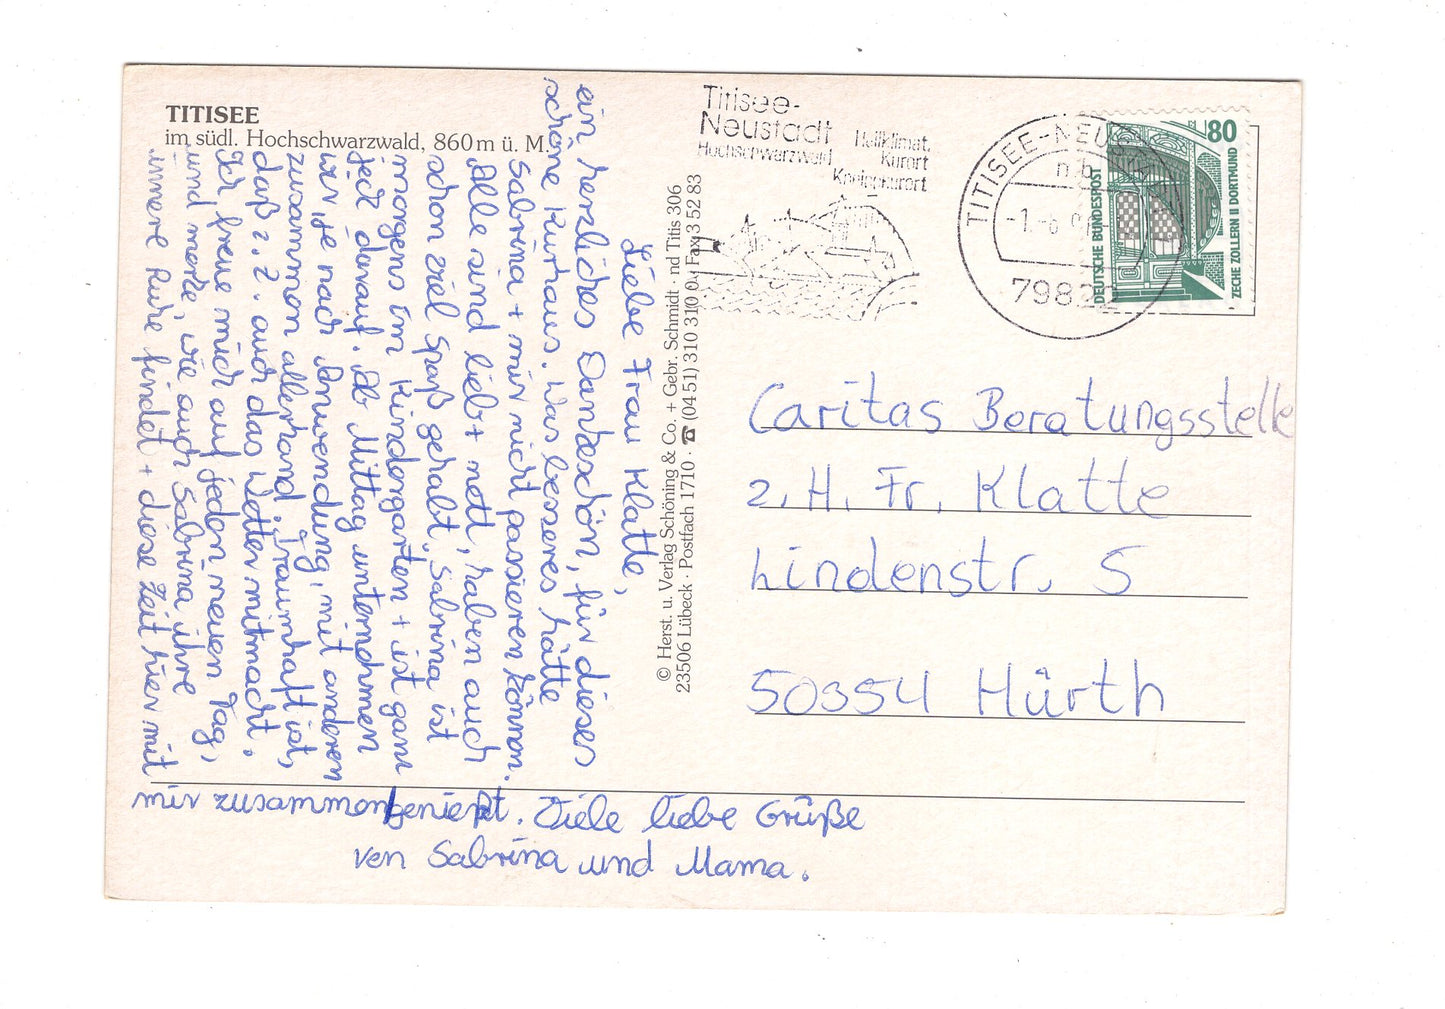 TITISEE
im südl. Hochschwarzwald, 860 m ü. M.
Liebe Frau Klatte,
ein herzliches Dankeschön, für dieses
schöne Kurhaus. Was besseres hätte
Sabrina + mir nicht passieren können.
Alle sind lieb + nett, haben auch
schon viel Spaß gehabt. Sabrina ist
morgens im Kindergarten + ist ganz
jeck darauf. Ab Mittag unternehmen
wir, je nach Anwendung, mit anderen
zusammen allerhand. Traumhaft ist,
daß z. Z. auch das Wetter mitmacht.
Ich freue mich auf jeden neuen Tag,
und merke, wie auch Sabrina ihre
innere Ruhe findet + diese Zeit hier mit
mir zusammen genießt. Viele liebe Grüße
von Sabrina und Mama.
© Herst. u. Verlag Schöning & Co. + Gebr. Schmidt · nd Titis 306
23506 Lübeck · Postfach 1710 · ☎ (04 51) 310 310 Fax 3 52 83
Titisee-
Neustadt
Hochschwarzwald
Heilklimat.
Kurort
Kneippkurort
TITISEE-NEUS
nb
-1.-6
79822
80
DEUTSCHE BUNDESPOST
ZECHE ZOLLERN II DORTMUND
Caritas Beratungsstelle
z. H. Fr. Klatte
Lindenstr. 5
50354 Hürth